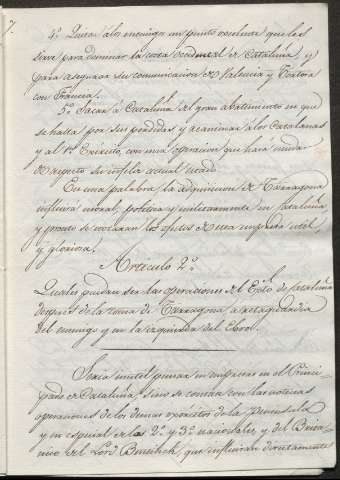 7.
4.º Quitar á los enemigos un punto excelente que les
sirve para dominar la costa occidental de Cataluña, y
para asegurar su comunicacion de Valencia y Tortosa
con Francia.
5.º Sacar á Cataluña del gran abatimiento en que
se halla por sus perdidas y reanimar á los Catalanes
y al 1.er Exército, con una operacion que hará mudar
de aspecto su infeliz actual estado.
En una palabra, la adquisicion de Tarragona
influirá moral, politica y militarmente en Cataluña
y pronto se notaran los efectos de esta empresa util
y gloriosa.
Articulo 2.º
Quales puedan ser las operaciones del Exto. de Cataluña
después de la toma de Tarragona a retaguardia
del enemigo y en la izquierda del Ebro.
Seria inutil pensar en empresas en el Princi-
pado de Cataluña, sino se contara con las
operaciones de los demas exercitos de la peninsula
y en especial de los 2.º y 3.º nacionales, y del Brita-
nico del Lord Bentinck, que influiran directamente